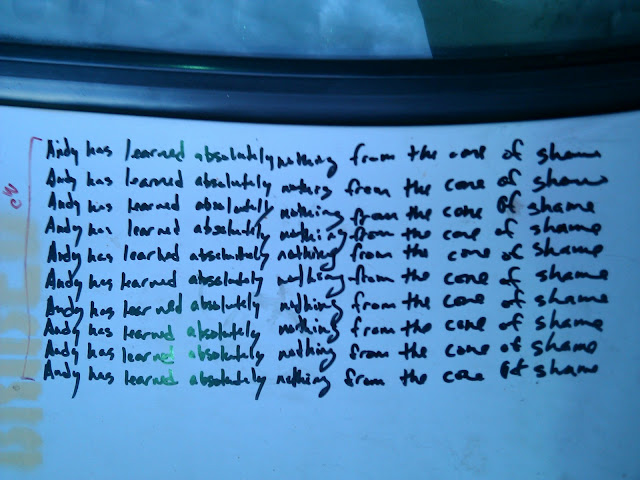 Andy has learned absolutely nothing from the cone of shame
Andy has learned absolutely nothing from the cone of shame
Andy has learned absolutely nothing from the cone of shame
Andy has learned absolutely nothing from the cone of shame
Andy has learned absolutely nothing from the cone of shame
Andy has learned absolutely nothing from the cone of shame
Andy has learned absolutely nothing from the cone of shame
Andy has learned absolutely nothing from the cone of shame
Andy has learned absolutely nothing from the cone of shame
Andy has learned absolutely nothing from the cone of shame